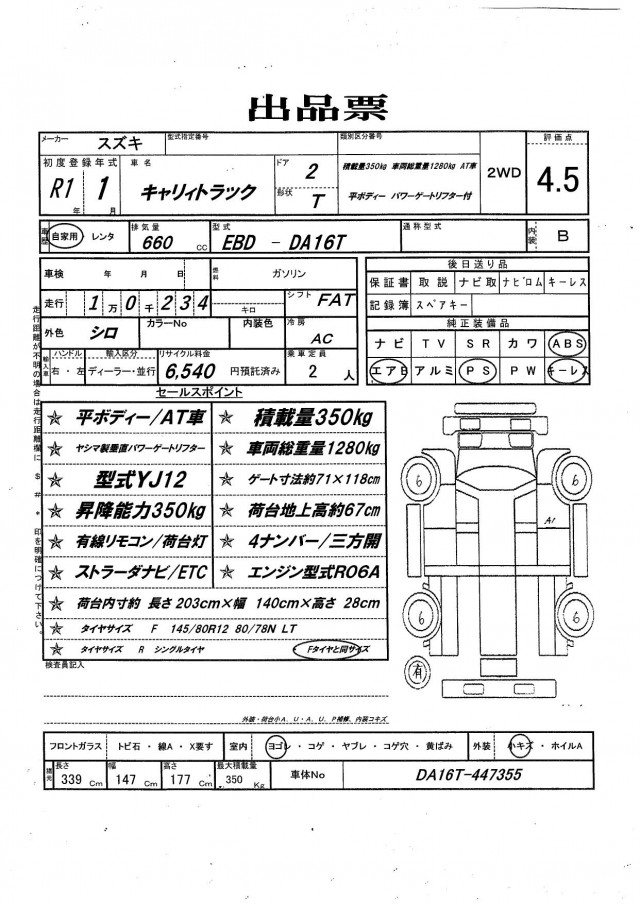 出品票
メーカー スズキ 型式指定番号 類別区分番号 評価点
積載量350kg 車両総重量1280kg AT車
平ボディー パワーゲートリフター付
2WD 4.5
初度登録年式 車名 ドア 2
R1 年 1 月 キャリィトラック 形状 T
車歴 自家用 レンタ 排気量 660 cc 型式 EBD - DA16T 通称型式 内装 B
車検 年 月 日 燃料 ガソリン
走行 1万0千234 キロ シフト FAT
外色 シロ カラーNo 内装色 冷房 AC
輸入車 ハンドル 右・左 輸入区分 ディーラー・並行 リサイクル料金 6,540 円預託済み 乗車定員 2 人
後日送り品
保証書 取説 ナビ取 ナビロム キーレス
記録簿 スペアキー
純正装備品
ナビ TV SR カワ ABS
エアB アルミ PS PW キーレス
走行距離が不明の場合は走行距離欄に $ # * 印を明確につけて下さい。
セールスポイント
☆ 平ボディー/AT車 ☆ 積載量350kg
☆ ヤシマ製垂直パワーゲートリフター ☆ 車両総重量1280kg
☆ 型式YJ12 ☆ ゲート寸法約71×118cm
☆ 昇降能力350kg ☆ 荷台地上高約67cm
☆ 有線リモコン/荷台灯 ☆ 4ナンバー/三方開
☆ ストラーダナビ/ETC ☆ エンジン型式R06A
☆ 荷台内寸約 長さ203cm×幅 140cm×高さ 28cm
☆ タイヤサイズ F 145/80R12 80/78N LT
☆ タイヤサイズ R シングルタイヤ Fタイヤと同サイズ
6 6
A1
6 6
有
検査員記入
外装・荷台小A、U・A、U、P補修、内装コキズ
フロントガラス トビ石・線A・X要す 室内 ヨゴレ・コゲ・ヤブレ・コゲ穴・黄ばみ 外装 小キズ・ホイルA
諸元 長さ 339 Cm 幅 147 Cm 高さ 177 Cm 最大積載量 350 Kg 車体No DA16T-447355